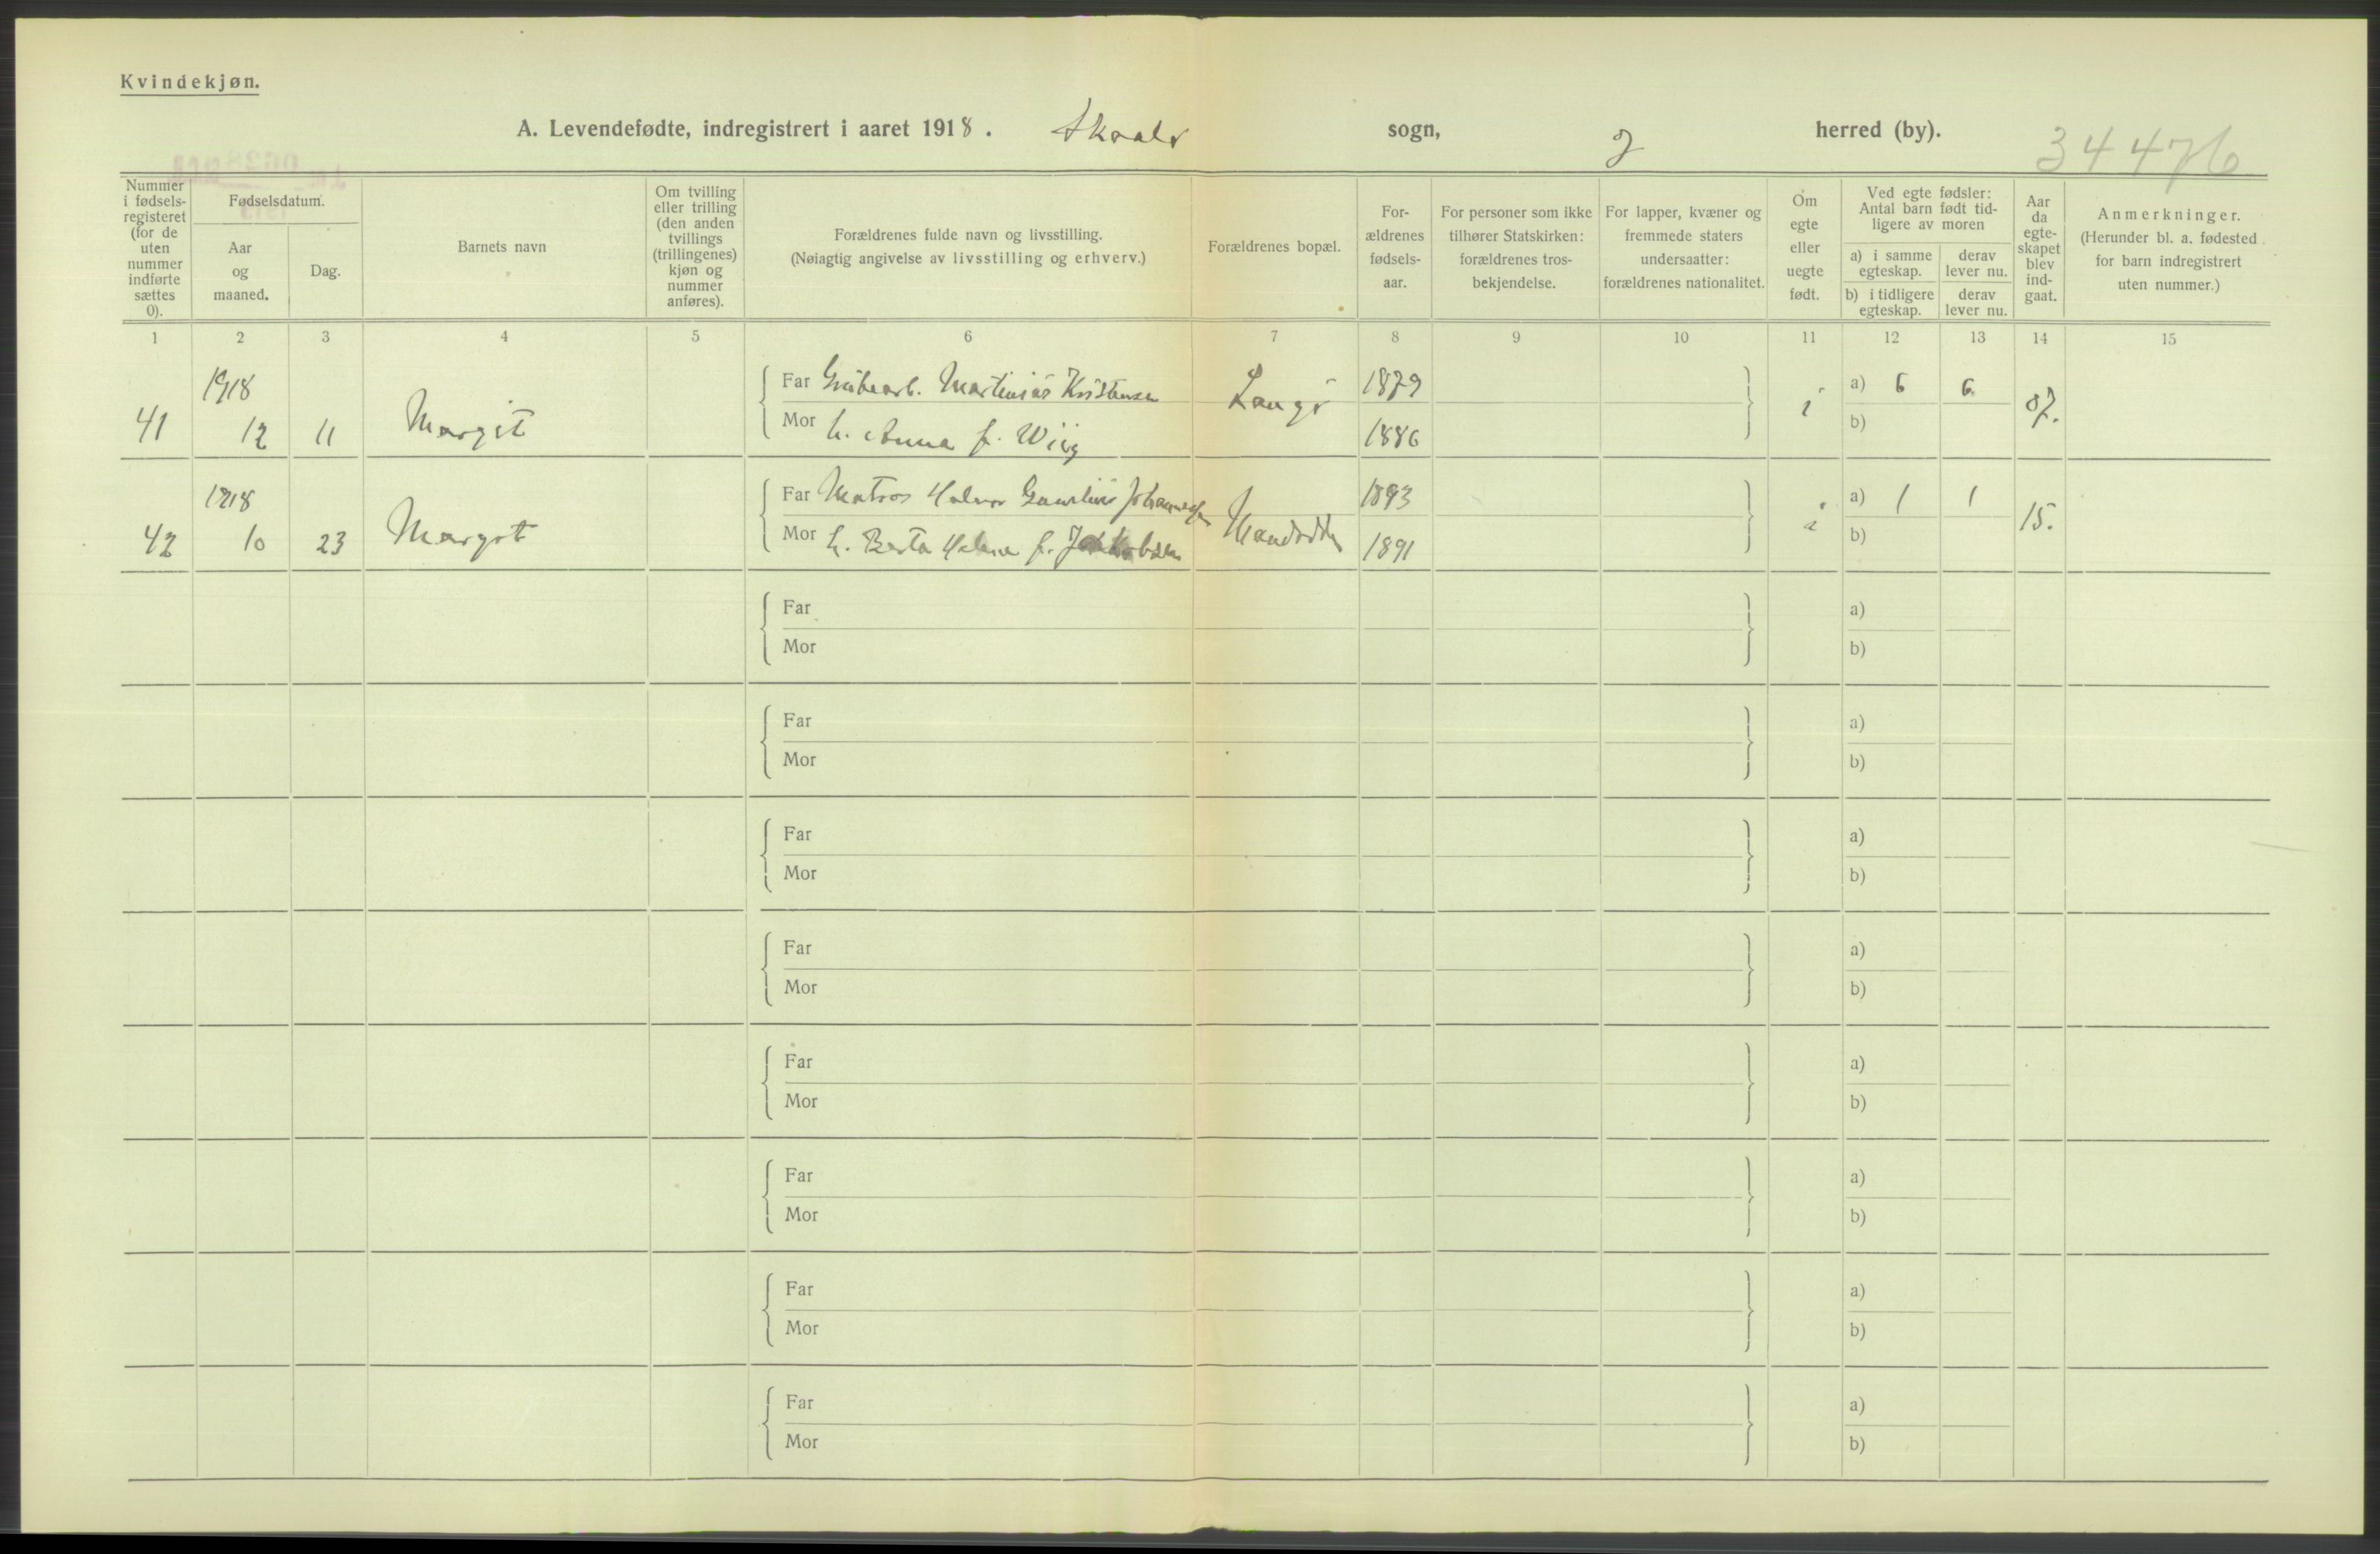 Kvindekjøn.
A. Levendefødte, indregistrert i aaret 1918. sogn, herred (by).
34476
Nummer i fødselsregisteret (for de uten nummer indførte sættes 0).
Fødselsdatum.
Aar og maaned.
Dag.
Barnets navn
Om tvilling eller trilling (den anden tvillings (trillingenes) kjøn og nummer anføres).
Forældrenes fulde navn og livsstilling.
(Nøiagtig angivelse av livsstilling og erhverv.)
Forældrenes bopæl.
For-
ældrenes
fødsels-
aar.
For personer som ikke
tilhører Statskirken:
forældrenes tros-
bekjendelse.
For lapper, kvæner og
fremmede staters
undersaatter:
forældrenes nationalitet.
Om
egte
eller
uegte
født.
Ved egte fødsler:
Antal barn født tid-
ligere av moren
a) i samme egteskap.
derav lever nu.
b) i tidligere egteskap.
derav lever nu.
Aar
da
egte-
skapet
blev
ind-
gaat.
Anmerkninger.
(Herunder bl. a. fødested
for barn indregistrert
uten nummer.)
1 2 3 4 5 6 7 8 9 10 11 12 13 14 15
1918
41 12 11 Margit
Far Martinius Kristensen Langø 1879 a) 6 6
Mor h. Anna f. Wiig 1886 b) 07.
1918
42 10 23 Margot
Far Matros Halvor Johannessen 1893 a) 1 1
Mor h. Berta f. Jakobsen 1891 b) 15.
Far a)
Mor b)
Far a)
Mor b)
Far a)
Mor b)
Far a)
Mor b)
Far a)
Mor b)
Far a)
Mor b)
Far a)
Mor b)
Far a)
Mor b)